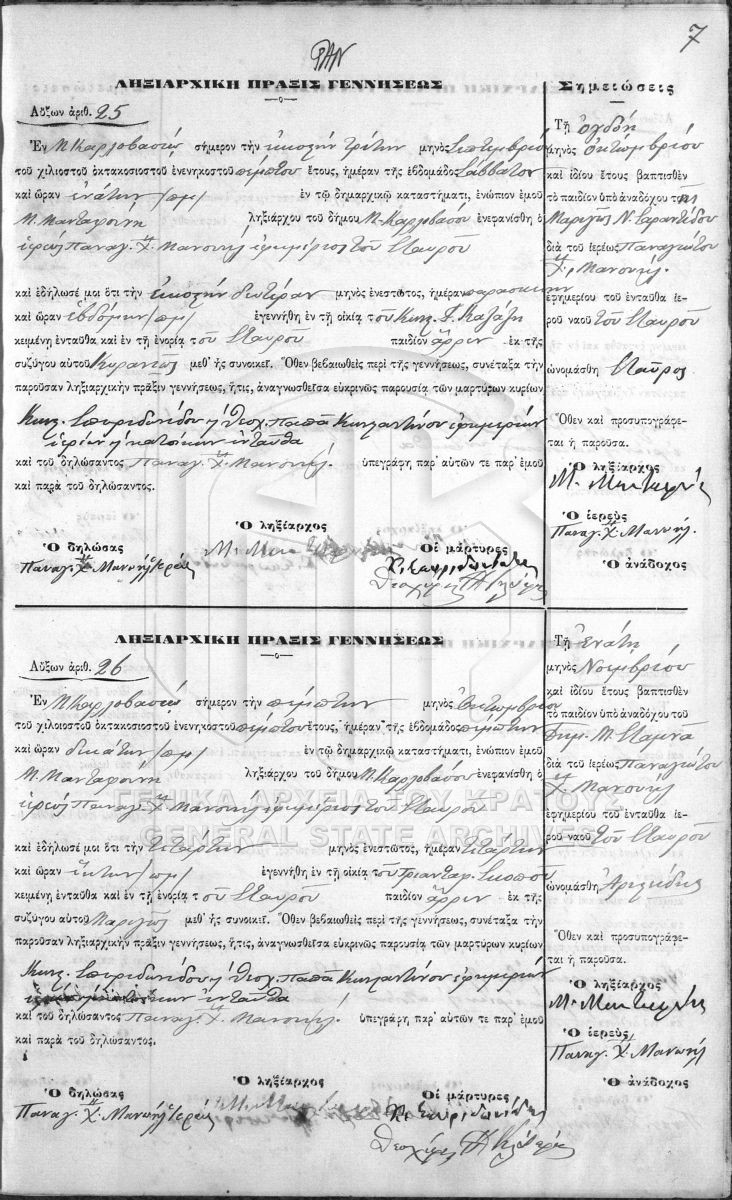 7
ΡΑΝ
ΛΗΞΙΑΡΧΙΚΗ ΠΡΑΞΙΣ ΓΕΝΝΗΣΕΩΣ
Αὔξων ἀριθ. 25
Ἐν Μ. Καρλοβασίῳ σήμερον τὴν εἰκοστὴν τρίτην μηνὸς Σεπτεμβρίου
τοῦ χιλιοστοῦ ὀκτακοσιοστοῦ ἐνενηκοστοῦ πέμπτου ἔτους, ἡμέραν τῆς ἑβδομάδος Σάββατον
καὶ ὥραν ἐνάτην /πμ/ ἐν τῷ δημαρχικῷ καταστήματι, ἐνώπιον ἐμοῦ
Μ. ληξιάρχου τοῦ δήμου Μ. Καρλοβασίου ἐνεφανίσθη ὁ
ἱερεὺς Παναγ. Χ. Μανουὴλ ἐφημέριος τοῦ Σταυροῦ
καὶ ἐδήλωσέ μοι ὅτι τὴν εἰκοστὴν δευτέραν μηνὸς ἐνεστῶτος, ἡμέραν παρασκευὴν
καὶ ὥραν ἑβδόμην /πμ/ ἐγεννήθη ἐν τῇ οἰκίᾳ τοῦ Κωνς. Γ. Καζάζη
κειμένῃ ἐνταῦθα καὶ ἐν τῇ ἐνορίᾳ τοῦ Σταυροῦ παιδίον ἄρρεν ἐκ τῆς
συζύγου αὐτοῦ μεθ᾽ ἧς συνοικεῖ. Ὅθεν βεβαιωθεὶς περὶ τῆς γεννήσεως, συνέταξα τὴν
παροῦσαν ληξιαρχικὴν πρᾶξιν γεννήσεως, ἥτις, ἀναγνωσθεῖσα εὐκρινῶς παρουσίᾳ τῶν μαρτύρων κυρίων
Κωνς. Σπυριδωνίδου ἢ Θεοχ. Παπᾶ Κωνσταντίνου ἐφημερίων
ἱερέων ἢ κατοίκων ἐνταῦθα
καὶ τοῦ δηλώσαντος Παναγ. Χ. Μανουὴλ. ὑπεγράφη παρ᾽ αὐτῶν τε παρ᾽ ἐμοῦ
καὶ παρὰ τοῦ δηλώσαντος.
Ὁ δηλώσας
Παναγ. Χ. Μανωὴλ ἱερεὺς
Ὁ ληξίαρχος
Οἱ μάρτυρες
Κ. Σπυριδωνίδης
Σημειώσεις
Τῇ ὀγδόῃ
μηνὸς Ὀκτωμβρίου
καὶ ἰδίου ἔτους βαπτισθὲν
τὸ παιδίον ὑπὸ ἀναδόχου τῆς
Μαριγῶς Ν. Σαραντίδου
διὰ τοῦ ἱερέως Παναγιώτου
Χ. Μανουὴλ
ἐφημερίου τοῦ ἐνταῦθα ἱε-
ροῦ ναοῦ τοῦ Σταυροῦ
ὠνομάσθη Σταῦρος
Ὅθεν καὶ προσυπογράφε-
ται ἡ παροῦσα.
Ὁ ληξίαρχος
Ὁ ἱερεὺς
Παναγ. Χ. Μανωὴλ.
Ὁ ἀνάδοχος
ΛΗΞΙΑΡΧΙΚΗ ΠΡΑΞΙΣ ΓΕΝΝΗΣΕΩΣ
Αὔξων ἀριθ. 26
Ἐν Μ. Καρλοβασίῳ σήμερον τὴν πέμπτην μηνὸς Ὀκτωμβρίου
τοῦ χιλιοστοῦ ὀκτακοσιοστοῦ ἐνενηκοστοῦ πέμπτου ἔτους, ἡμέραν τῆς ἑβδομάδος πέμπτην
καὶ ὥραν δεκάτην /πμ/ ἐν τῷ δημαρχικῷ καταστήματι, ἐνώπιον ἐμοῦ
Μ. ληξιάρχου τοῦ δήμου Μ. Καρλοβασίου ἐνεφανίσθη ὁ
ἱερεὺς Παναγ. Χ. Μανουὴλ ἐφημέριος τοῦ Σταυροῦ
καὶ ἐδήλωσέ μοι ὅτι τὴν τετάρτην μηνὸς ἐνεστῶτος, ἡμέραν τετάρτην
καὶ ὥραν ἕκτην /πμ/ ἐγεννήθη ἐν τῇ οἰκίᾳ τοῦ Τριανταφ.
κειμένῃ ἐνταῦθα καὶ ἐν τῇ ἐνορίᾳ τοῦ Σταυροῦ παιδίον ἄρρεν ἐκ τῆς
συζύγου αὐτοῦ Μαριγῶς μεθ᾽ ἧς συνοικεῖ. Ὅθεν βεβαιωθεὶς περὶ τῆς γεννήσεως, συνέταξα τὴν
παροῦσαν ληξιαρχικὴν πρᾶξιν γεννήσεως, ἥτις, ἀναγνωσθεῖσα εὐκρινῶς παρουσίᾳ τῶν μαρτύρων κυρίων
Κωνς. Σπυριδωνίδου ἢ Θεοχ. Παπᾶ Κωνσταντίνου ἐφημερίων
ἐνταῦθα
καὶ τοῦ δηλώσαντος Παναγ. Χ. Μανουὴλ. ὑπεγράφη παρ᾽ αὐτῶν τε παρ᾽ ἐμοῦ
καὶ παρὰ τοῦ δηλώσαντος.
Ὁ δηλώσας
Παναγ. Χ. Μανωὴλ ἱερεὺς
Ὁ ληξίαρχος
Οἱ μάρτυρες
Κ. Σπυριδωνίδης
Τῇ ἐνάτῃ
μηνὸς Νοεμβρίου
καὶ ἰδίου ἔτους βαπτισθὲν
τὸ παιδίον ὑπὸ ἀναδόχου τοῦ
Δημ. Μ. Σταμνᾶ
διὰ τοῦ ἱερέως Παναγιώτου
Χ. Μανουὴλ
ἐφημερίου τοῦ ἐνταῦθα ἱε-
ροῦ ναοῦ τοῦ Σταυροῦ
ὠνομάσθη Ἀριστείδης
Ὅθεν καὶ προσυπογράφε-
ται ἡ παροῦσα.
Ὁ ληξίαρχος
Ὁ ἱερεὺς
Παναγ. Χ. Μανωὴλ
Ὁ ἀνάδοχος
ΓΕΝΙΚΑ ΑΡΧΕΙΑ ΤΟΥ ΚΡΑΤΟΥΣ
GENERAL STATE ARCHIVES